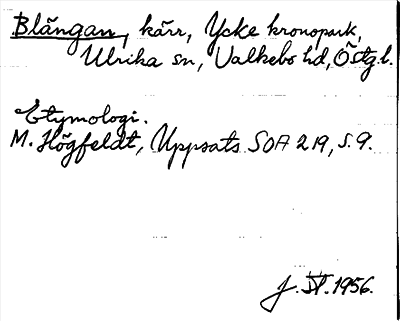 Blängan, kärr, Ycke kronopark,
Ulrika sn, Valkebo hd, Östg.l.
Etymologi.
M. Högfeldt, Uppsats SOA 219, s. 9.
J. 1956.